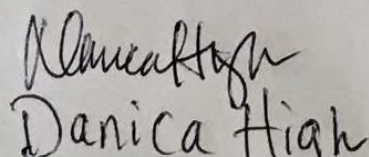 Danica High
Danica High